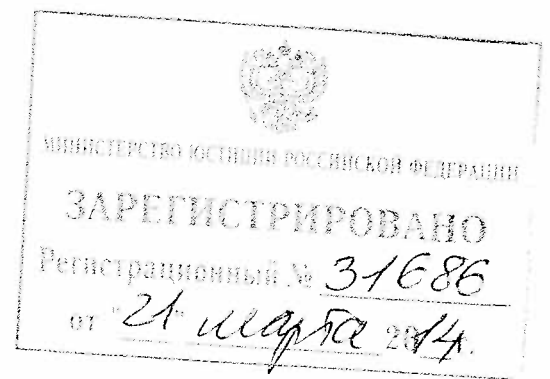 МИНИСТЕРСТВО ЮСТИЦИИ РОССИЙСКОЙ ФЕДЕРАЦИИ
ЗАРЕГИСТРИРОВАНО
Регистрационный № 31686
от "21" марта 2014г.